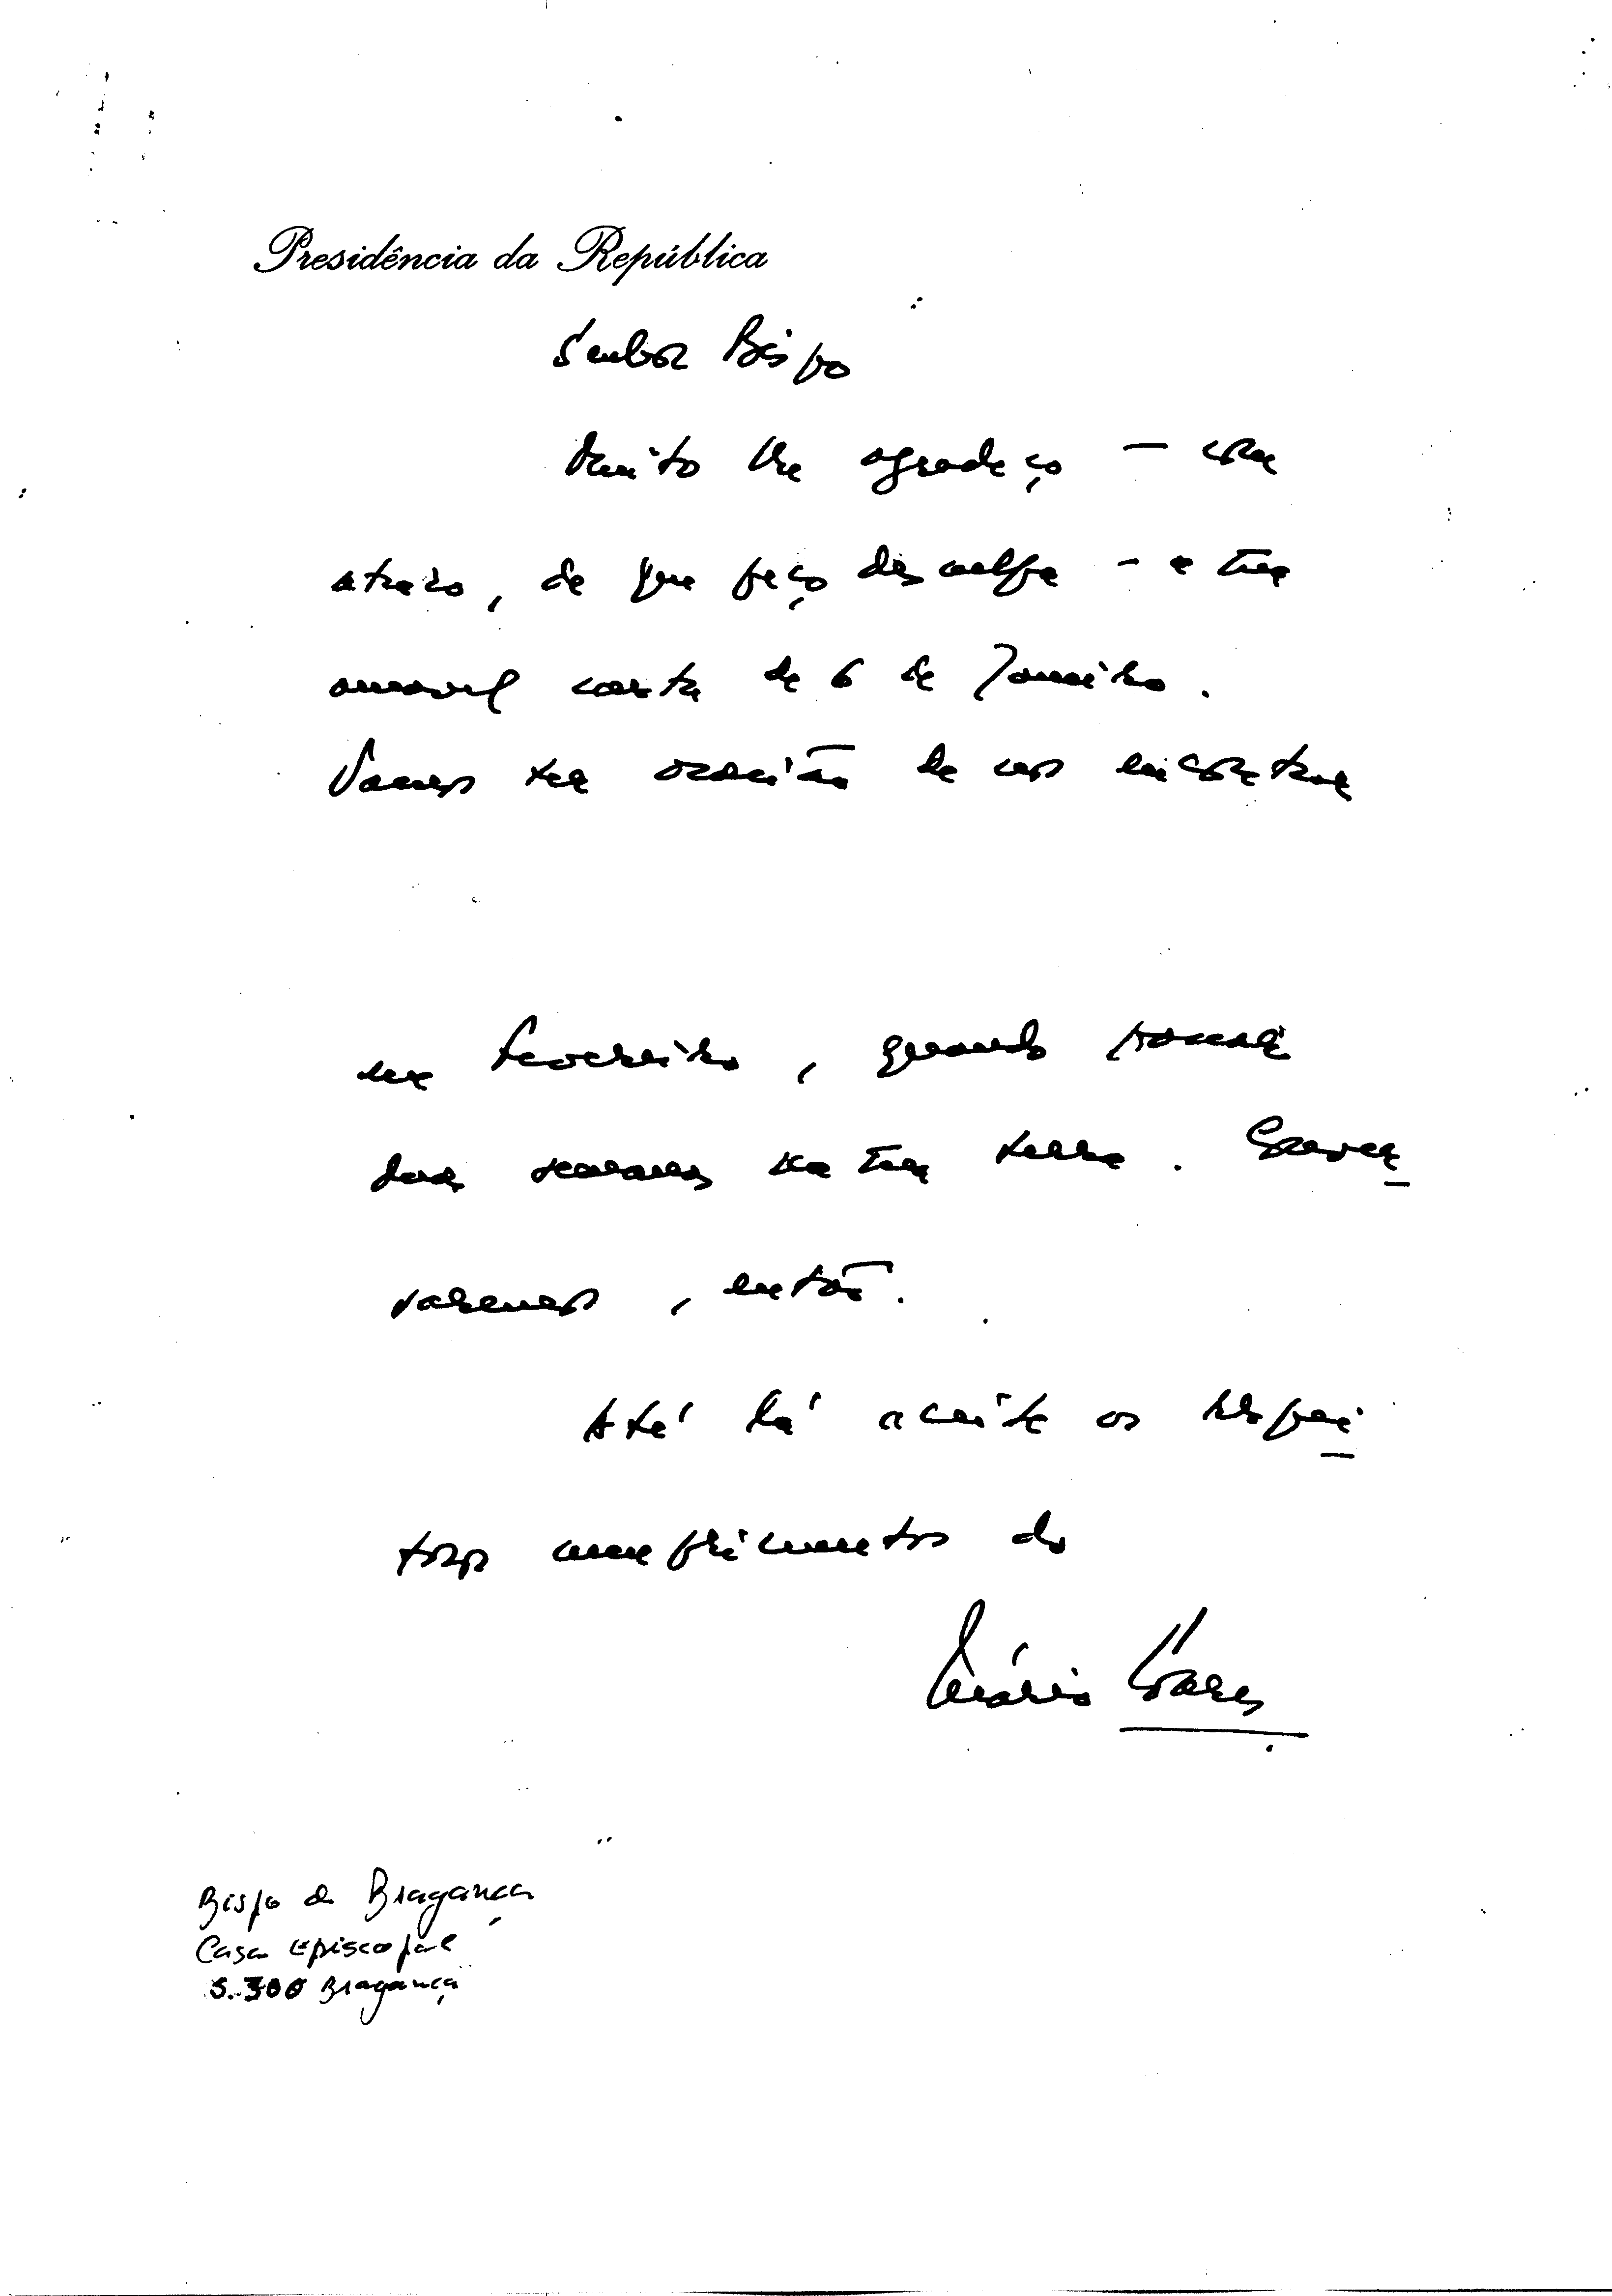 Presidência da República
Senhor Bispo
Muito lhe agradeço – com
atraso, de que peço desculpa – a sua
amavel carta de 6 de Janeiro.
Vamos ter ocasião de nos encontrar
em Fevereiro, quando passar
duas semanas na sua terra. Conver
saremos, então.
Até lá aceite os respei
tosos cumprimentos do
Mário Soares
Bispo de Bragança
Casa Episcopal
5.300 Bragança